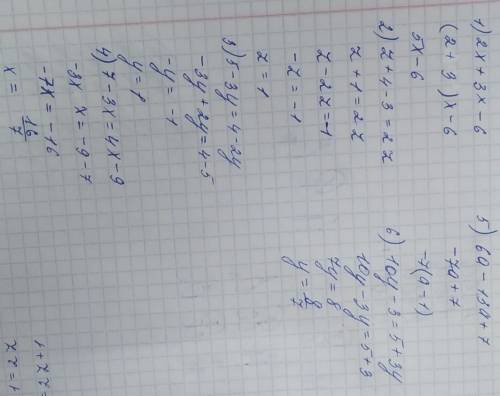 1) 2x+3x-6
(2+3)x-6
5x-6
2) z+4-3=2z
z+1=2z
z-2z=-1
-z=-1
z=1
3) 5-3y=4-2y
-3y+2y=4-5
-y=-1
y=1
4) 7-3x=4x-9
-3x - x=-9-7
-7x=-16
16/7 = x
5) 6a-13a+7
-7a+7
-7(a-1)
6) 10y-3=5+3y
10y-3y=5+3
7y=8
y=8/7
=2z+1
1=2z